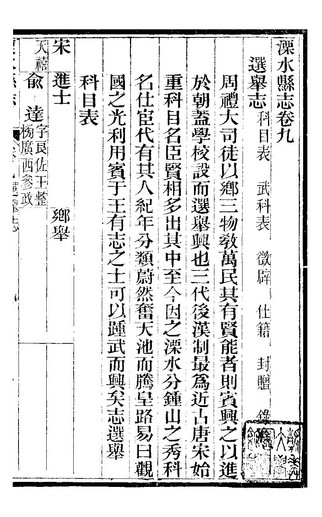 溧水縣志卷九
選舉志 科目表 武科表 徵辟 仕籍 封贈
周禮大司徒以鄉三物教萬民其有賢能者則賓興之以進
於朝蓋學校設而選舉興也三代後漢制最為近古唐宋始
重科目名臣賢相多出其中至今因之溧水分鍾山之秀科
名仕宦代有其人紀年分類蔚然奮天池而騰皇路易曰觀
國之光利用賓于王有志之士可以踵武而興矣志選舉
科目表
宋 進士 鄉舉
天禧 俞達 字艮佐王整
榜廣西參政